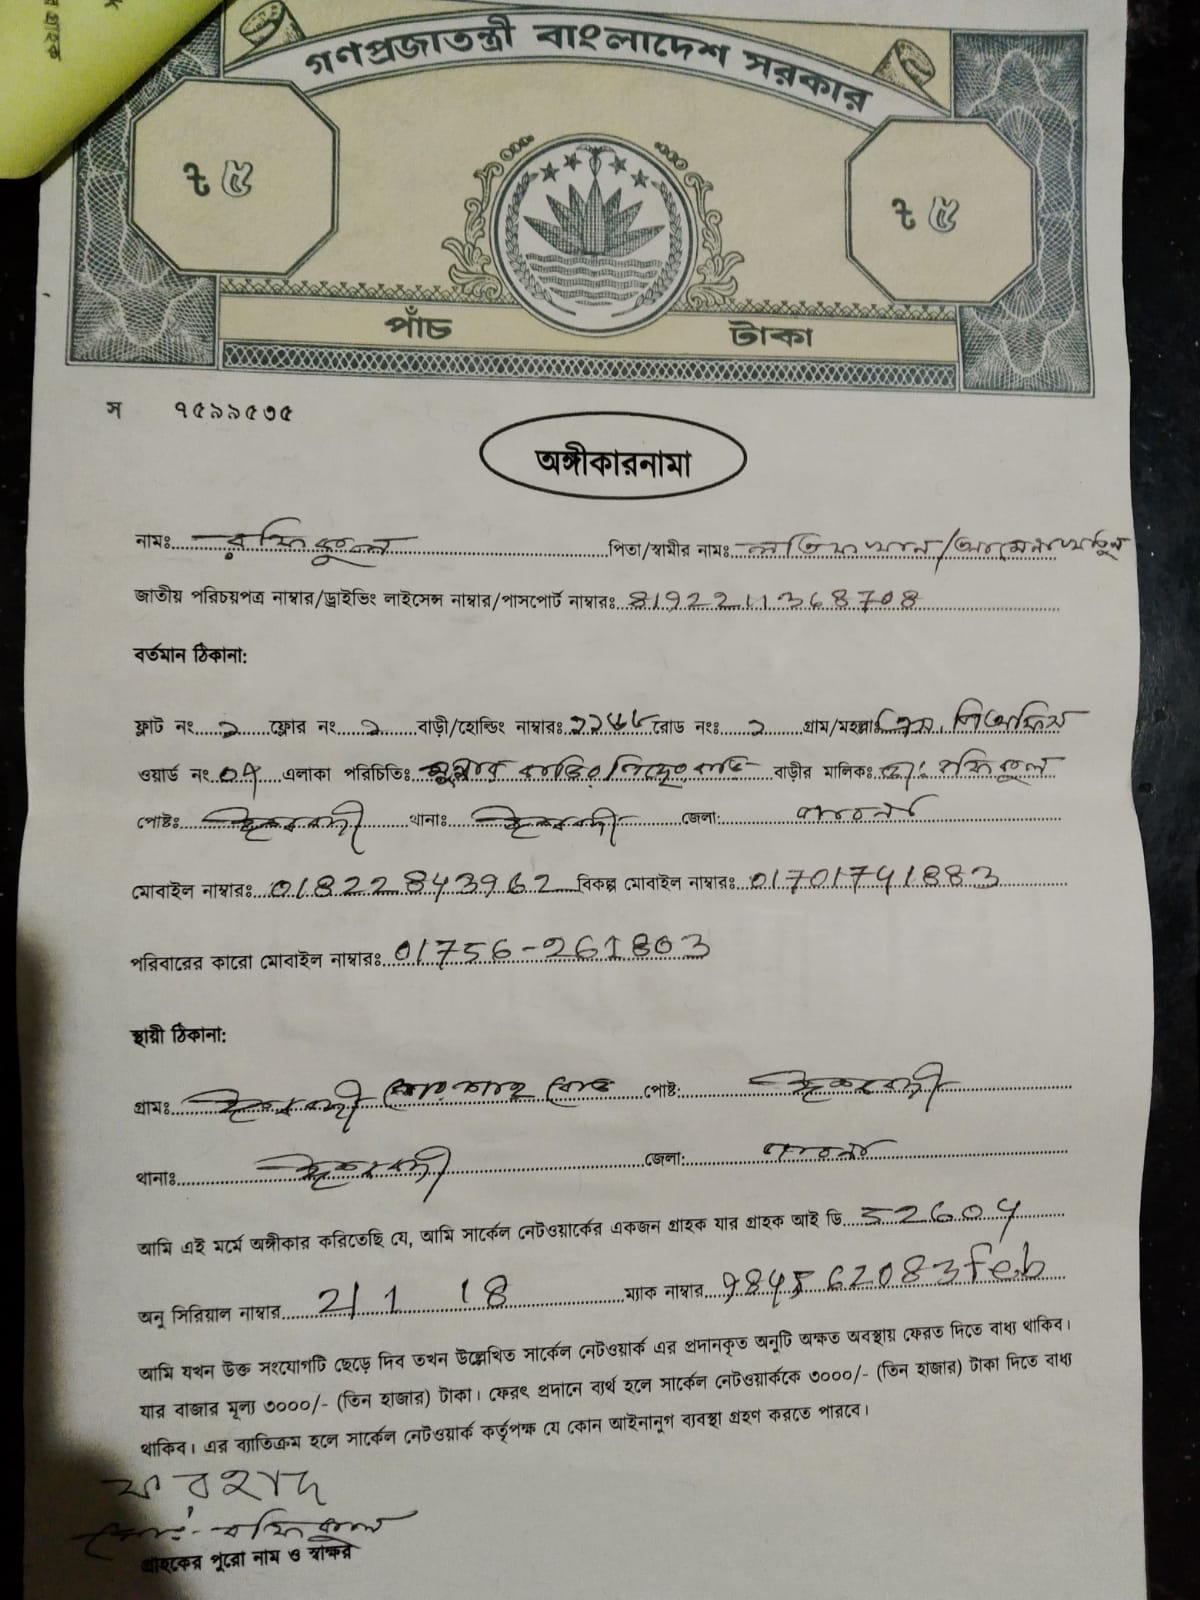 গণপ্রজাতন্ত্রী বাংলাদেশ সরকার
৳ ৫
৳ ৫
পাঁচ টাকা
স ৭৫৯৯৫৩৫
অঙ্গীকারনামা
নামঃ রফিকুল পিতা/স্বামীর নামঃ লতিফ খান/আমেনা খাতুন
জাতীয় পরিচয়পত্র নাম্বার/ড্রাইভিং লাইসেন্স নাম্বার/পাসপোর্ট নাম্বারঃ 8192211368708
বর্তমান ঠিকানা:
ফ্লাট নং ২ ফ্লোর নং ২ বাড়ী/হোল্ডিং নাম্বারঃ রোড নংঃ ২ গ্রাম/মহল্লা
ওয়ার্ড নং ০৭ এলাকা পরিচিতিঃ বাড়ীর মালিকঃ রফিকুল
পোষ্টঃ ঈশ্বরদী থানাঃ ঈশ্বরদী জেলা: পাবনা
মোবাইল নাম্বারঃ 01822843962 বিকল্প মোবাইল নাম্বারঃ 01701741883
পরিবারের কারো মোবাইল নাম্বারঃ 01756-261803
স্থায়ী ঠিকানা:
গ্রামঃ ঈশ্বরদী রোড পোষ্ট: ঈশ্বরদী
থানাঃ ঈশ্বরদী জেলা: পাবনা
আমি এই মর্মে অঙ্গীকার করিতেছি যে, আমি সার্কেল নেটওয়ার্কের একজন গ্রাহক যার গ্রাহক আই ডি 52604
অনু সিরিয়াল নাম্বার 21 1 18 ম্যাক নাম্বার
আমি যখন উক্ত সংযোগটি ছেড়ে দিব তখন উল্লেখিত সার্কেল নেটওয়ার্ক এর প্রদানকৃত অনুটি অক্ষত অবস্থায় ফেরত দিতে বাধ্য থাকিব।
যার বাজার মূল্য ৩০০০/- (তিন হাজার) টাকা। ফেরৎ প্রদানে ব্যর্থ হলে সার্কেল নেটওয়ার্ককে ৩০০০/- (তিন হাজার) টাকা দিতে বাধ্য
থাকিব। এর ব্যাতিক্রম হলে সার্কেল নেটওয়ার্ক কর্তৃপক্ষ যে কোন আইনানুগ ব্যবস্থা গ্রহণ করতে পারবে।
ফরহাদ
মোঃ- রফিকুল
গ্রাহকের পুরো নাম ও স্বাক্ষর